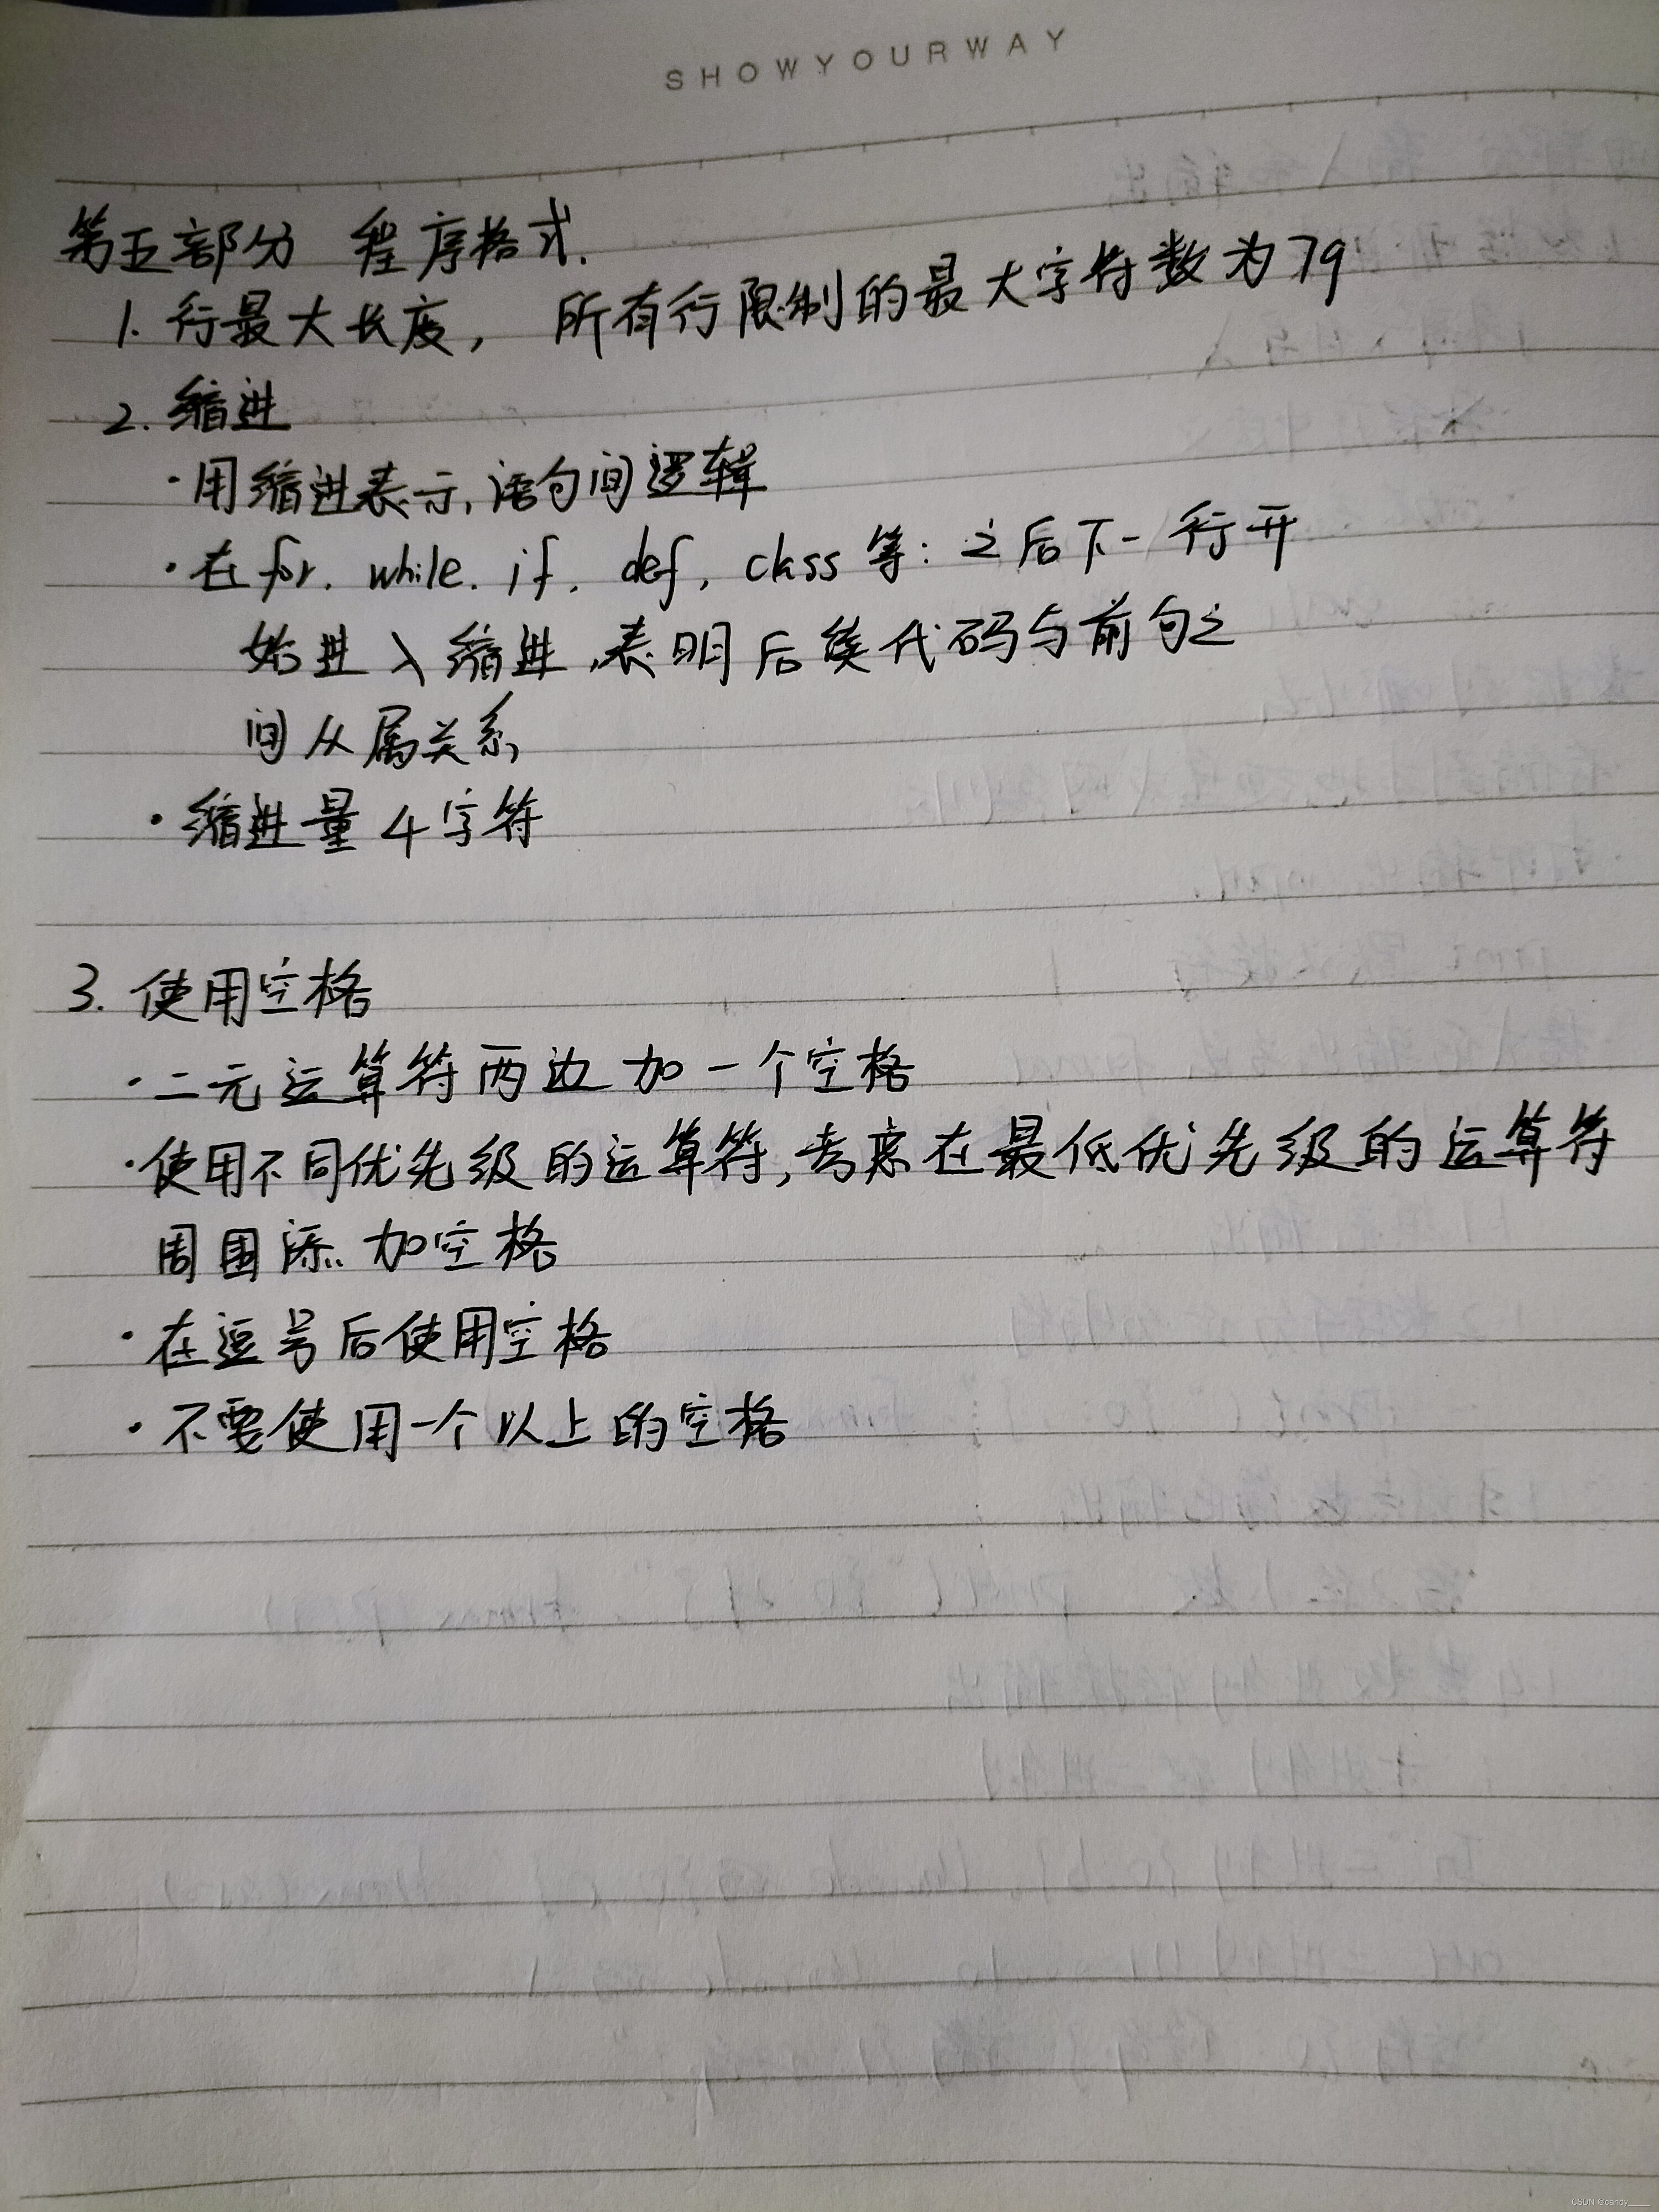 SHOWYOURWAY
第五部分 程序格式.
1. 行最大长度， 所有行限制的最大字符数为79
2. 缩进
·用缩进表示,语句间逻辑
·在for. while. if. def, class等：之后下一行开
始进入缩进,表明后续代码与前句之
间从属关系
·缩进量4字符
3. 使用空格
·二元运算符两边加一个空格
·使用不同优先级的运算符,考虑在最低优先级的运算符
周围添加空格
·在逗号后使用空格
·不要使用一个以上的空格
CSDN @candy____